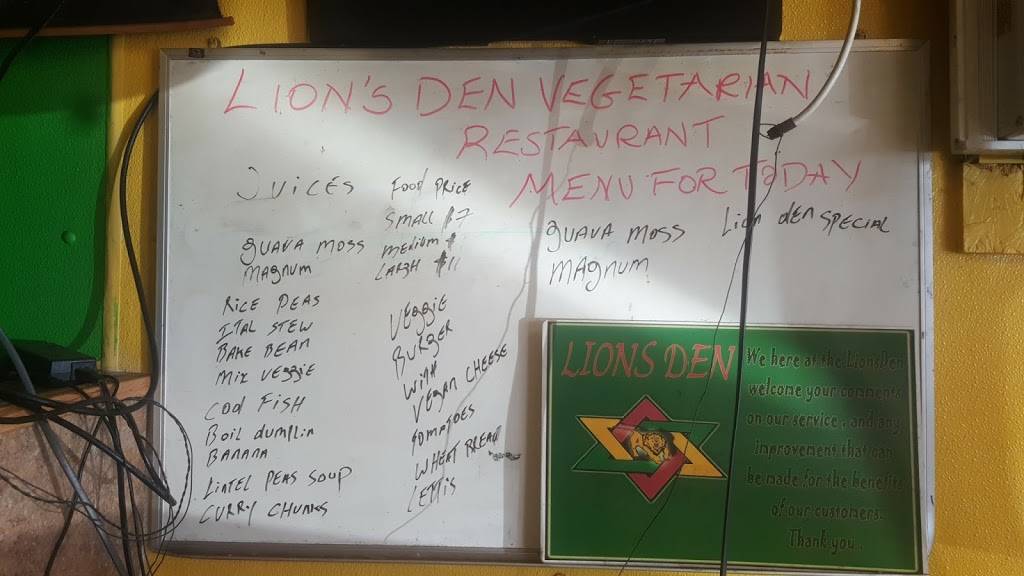 LION'S DEN VEGETARIAN
RESTAURANT
MENU FOR TODAY
JUICES
GUAVA MOSS
MAGNUM
Food PRICE
SMALL $7
MEDIUM $
LARGH $11
GUAVA MOSS
MAGNUM
Lion DEN SPECIAL
RICE PEAS
ITAL STEW
BAKE BEAN
MIX VEGGIE
COD FISH
Boil dumplin
BANANA
LINTEL PEAS SOUP
CURRY CHUNKS
VEGGIE
BURGER
WITH
VEGAN CHEESE
TOMATOES
WHEAT BREAD
LETTIS
LIONS DEN
We here at the LionsDen
welcome your comments
on our service, and any
improvement that can
be made for the benefits
of our customers.
Thank you..